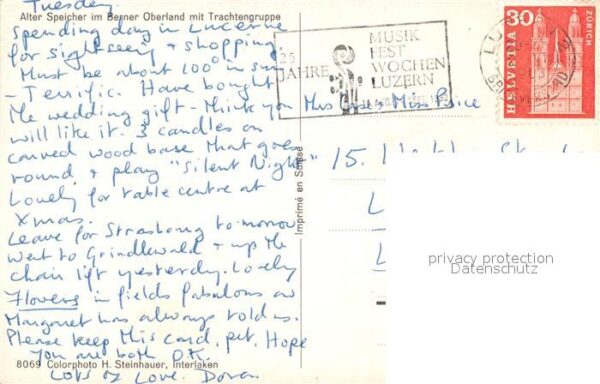 Tuesday.
Alter Speicher im Berner Oberland mit Trachtengruppe
Spending day in Lucerne
for sightseeing & shopping.
Must be about 100° in sun
- Terrific. Have bought
the wedding gift - think you
will like it. 3 candles on
carved wood base that goes
round & play "Silent Night"
Lovely for table centre at
Xmas.
Leave for Strasbourg to-morrow
Went to Grindlewald & up the
chair lift yesterday. Lovely
Flowers in fields fabulous as
Margaret has always told us.
Please keep this card, pet. Hope
you are both O.K.
8069 Colorphoto H. Steinhauer, Interlaken
Lots of Love.
Imprimé en Suisse
25
JAHRE
MUSIK
FEST
WOCHEN
LUZERN
30
HELVETIA
ZÜRICH
Miss Price
15.
L
L
privacy protection
Datenschutz